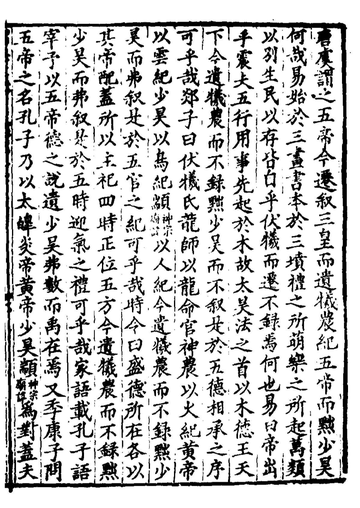 唐虞謂之五帝今遷叙三皇而遺犧農紀五帝而黜少昊
何哉易始於三畫書本於三墳禮之所萌樂之所起萬類
以别生民以存皆自乎伏犧而遷不録焉何也易曰帝出
乎震夫五行用事先起於木故太昊法之首以木德王天
下今遺犧農而不録黜少昊而不叙其於五德相承之序
可乎哉郯子曰伏犧氏龍師以龍命官神農以火紀黄帝
以雲紀少昊以鳥紀顓神宗廟諱以人紀今遺犧農而不録黜少
昊而弗叙其於五官之紀可乎哉時令曰盛德所在各以
其帝配蓋所以主祀四時正位五方今遺犧農而不録黜
少昊而弗叙其於五時迎氣之禮可乎哉家語載孔子語
宰予以五帝德之説遺少昊弗數而禹在焉又季康子問
五帝之名孔子乃以太皥炎帝黄帝少昊顓神宗廟諱爲對蓋夫